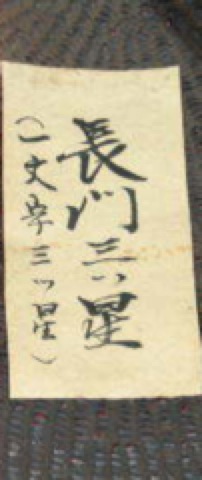 長門三ツ星
(一文字三ツ星)